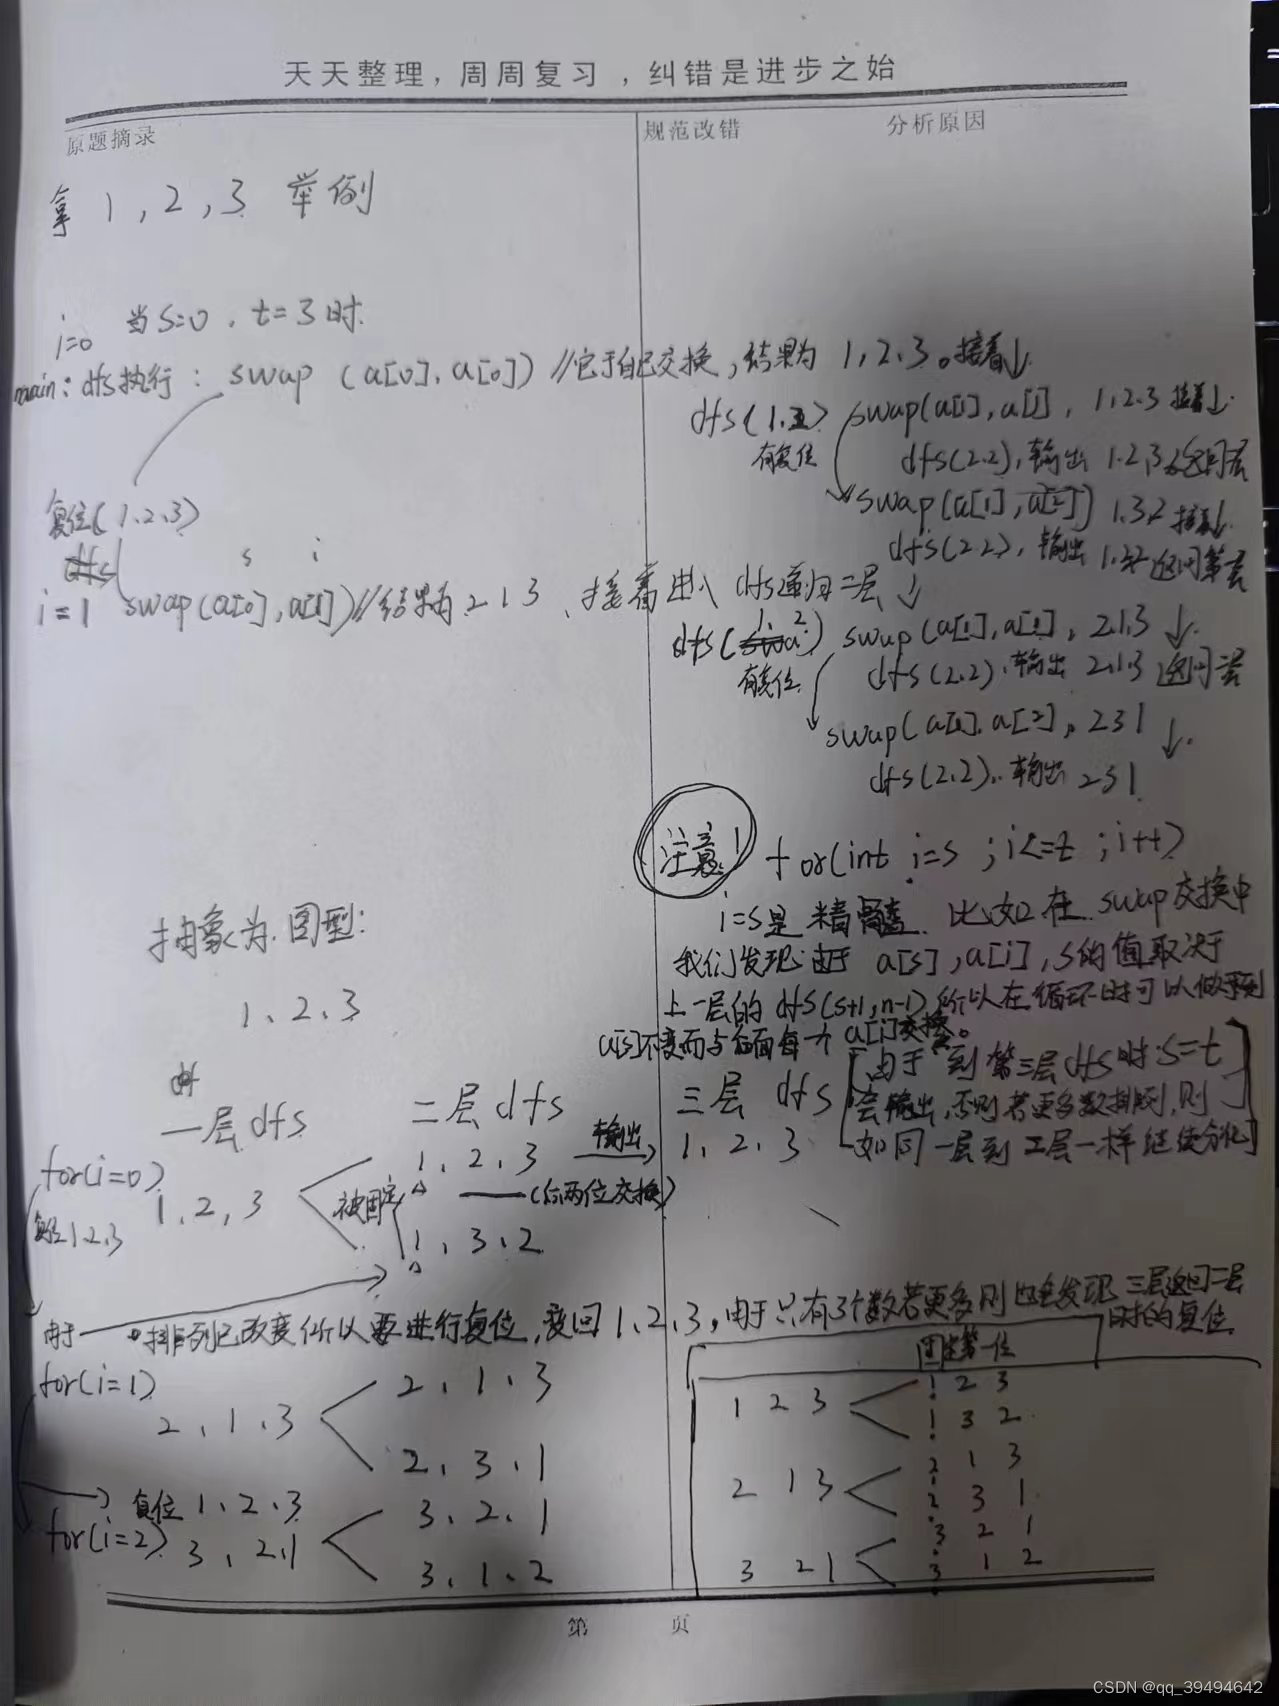 天天整理，周周复习，纠错是进步之始
原题摘录
规范改错
分析原因
拿 1，2，3 举例
i=0 当s=0，t=3时
main：dfs执行：swap（a[0]，a[0]）//它于自己交换，结果为 1，2、3。接着↓
复位(1、2、3)
s i
i=1 swap(a[0],a[1])//结果为 2 1 3、接着进入 dfs递归二层↓
dfs(1,2) swap(a[1],a[1]，1、2、3 接着↓
有复位
dfs(2.2)，输出 1、2、3
swap(a[1],a[2]) 1、3、2 接着↓
dfs(2.2)，输出
dfs(1、2) swap(a[1],a[1]，2、1、3 ↓
有复位
dfs(2.2)、输出 2、1、3
swap(a[1]、a[2]，2 3 1 ↓
dfs(2.2)，输出 2 3 1
注意！ for(int i=s ; i<=t ; i++)
i=s是精髓、比如在 swap交换中
我们发现由于 a[s],a[i],s的值取决于
上一层的 dfs(s+1,n-1)所以在循环时可以做到
a[s]不变而与后面每一个a[i]交换。
[由于到第三层dfs时s=t
会输出，否则若更多数排列，则
如同一层到二层一样继续分化]
抽象为图型：
1、2、3
一层dfs 二层dfs 三层dfs
for(i=0) 1、2、3
1、2、3 输出→ 1、2、3
被固定 (后两位交换)
复位1、2、3
1、3、2
由于 排列已改变所以要进行复位，变回 1、2、3，由于只有3个数若更多则也会发现 三层返回二层
时的复位
for(i=1)
2、1、3
2、1、3
2、3、1
复位 1、2、3
for(i=2) 3、2、1
3、2、1
3、1、2
固定第一位
1 2 3
1 2 3
1 3 2
2 1 3
2 1 3
2 3 1
3 2 1
3 2 1
3 1 2
第 页
CSDN @qq_39494642